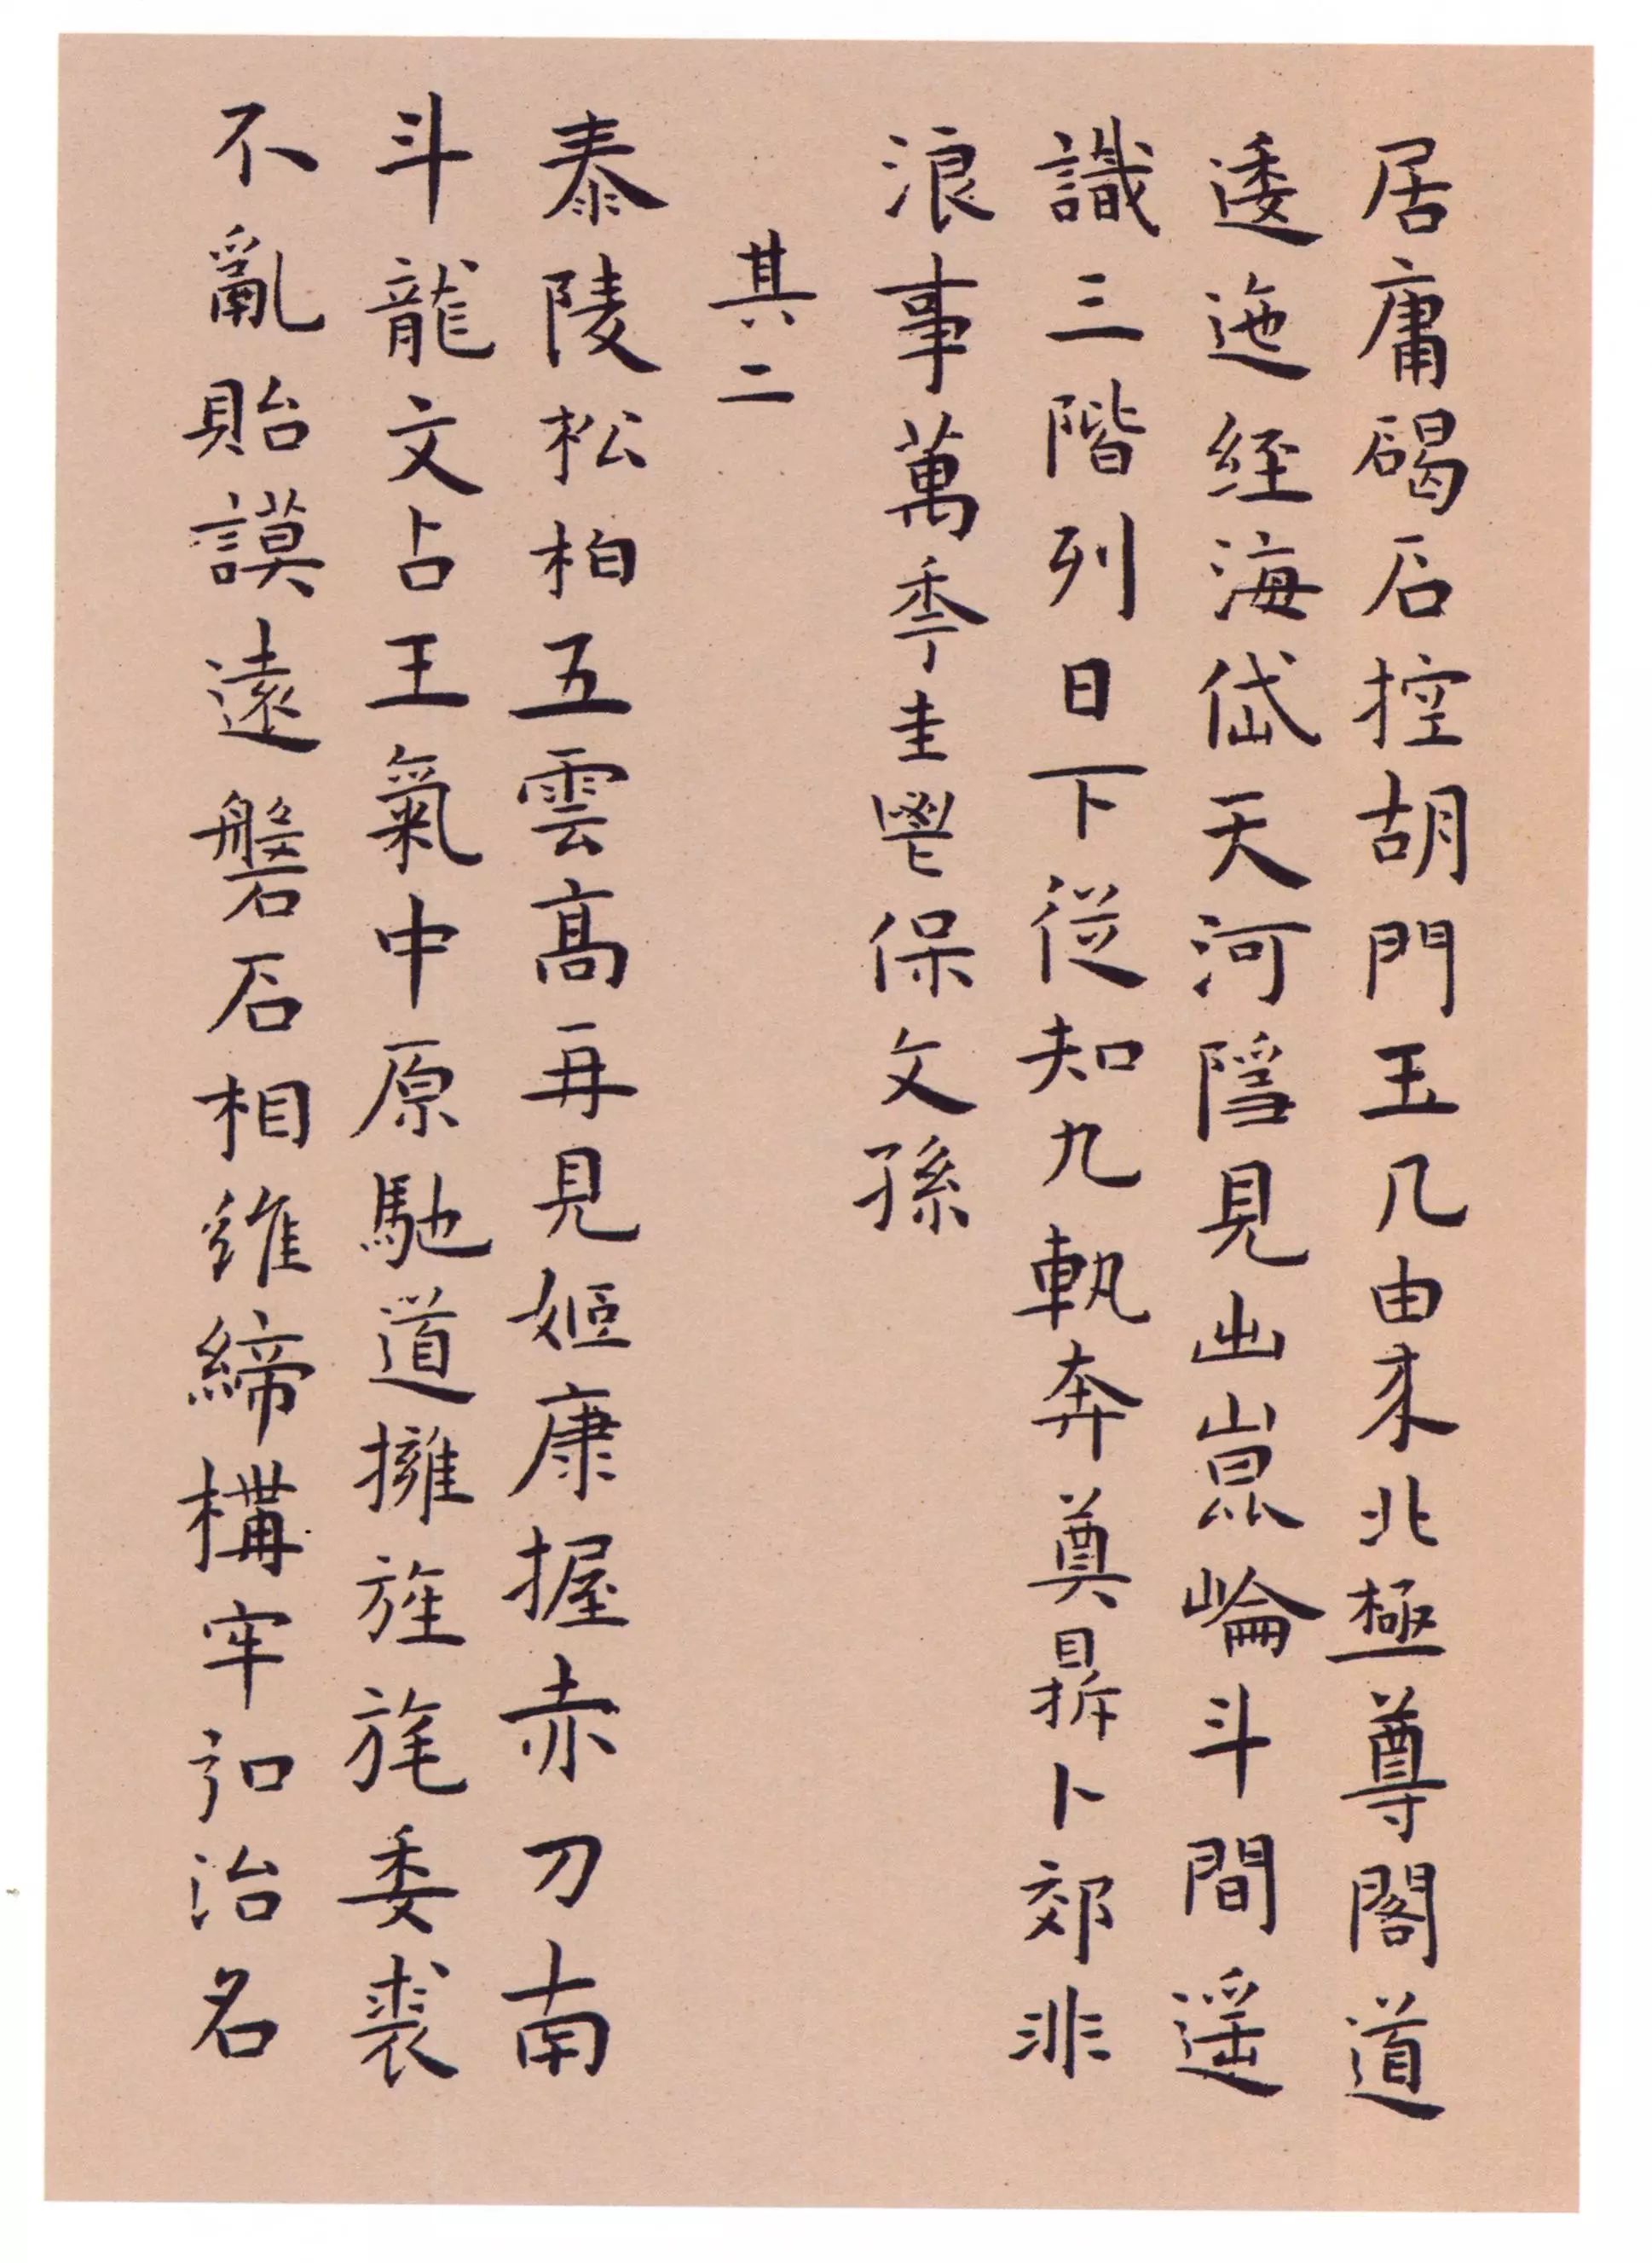 居庸碣石控胡門玉几由來北極尊閣道
逶迤經海岱天河隱見出崑崙斗間遥
識三階列日下從知九軌奔奠鼎卜郊非
浪事萬季圭鬯保文孫
其二
泰陵松柏五雲高再見姬康握赤刀南
斗龍文占王氣中原馳道擁旌旄委裘
不亂貽謨遠磐石相維締構牢弘治名